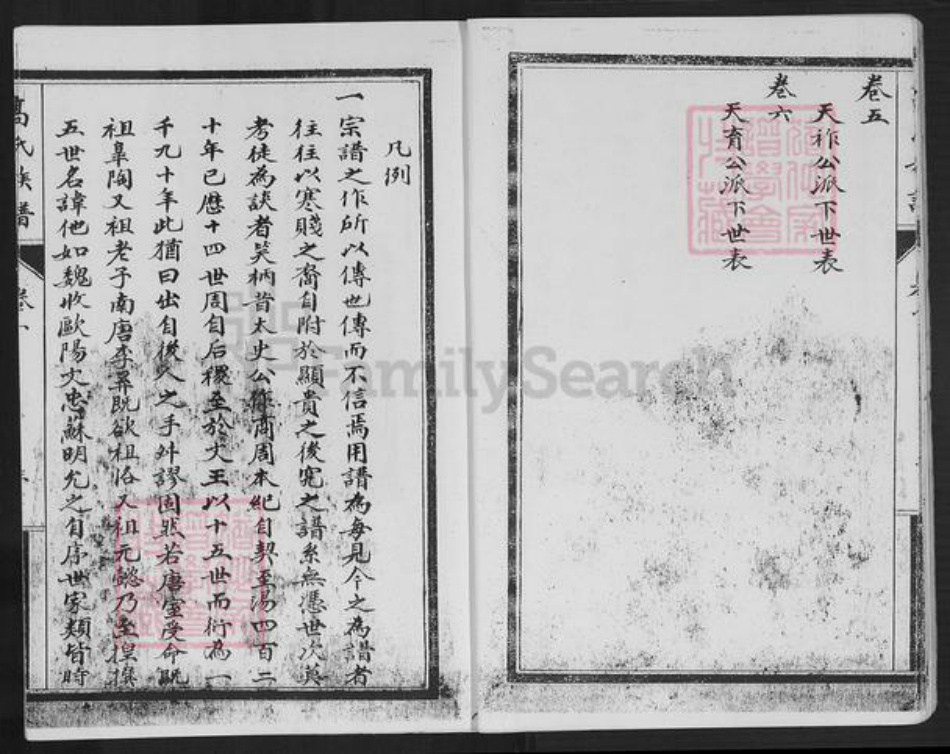 卷五
天祚公派下世表
卷六
天育公派下世表
凡例
一宗譜之作所以傳世傳而不信焉用譜為每見今之為譜者
往往以寒賤之裔自附於顯貴之後究之譜系無憑世次莫
考徒為談者笑柄昔太史公作商周本紀自契至湯四百二
十年已歷十四世周自后稷至於文王以十五世而衍為一
千九十年此猶曰出自後人之手舛謬固然若唐室受命既
祖皋陶又祖老子南唐李昪既欲祖恪又祖元懿乃至揑撰
五世名諱他如魏收歐陽文忠蘇明允之自序世家類皆時
氏族譜
卷一
FamilySearch